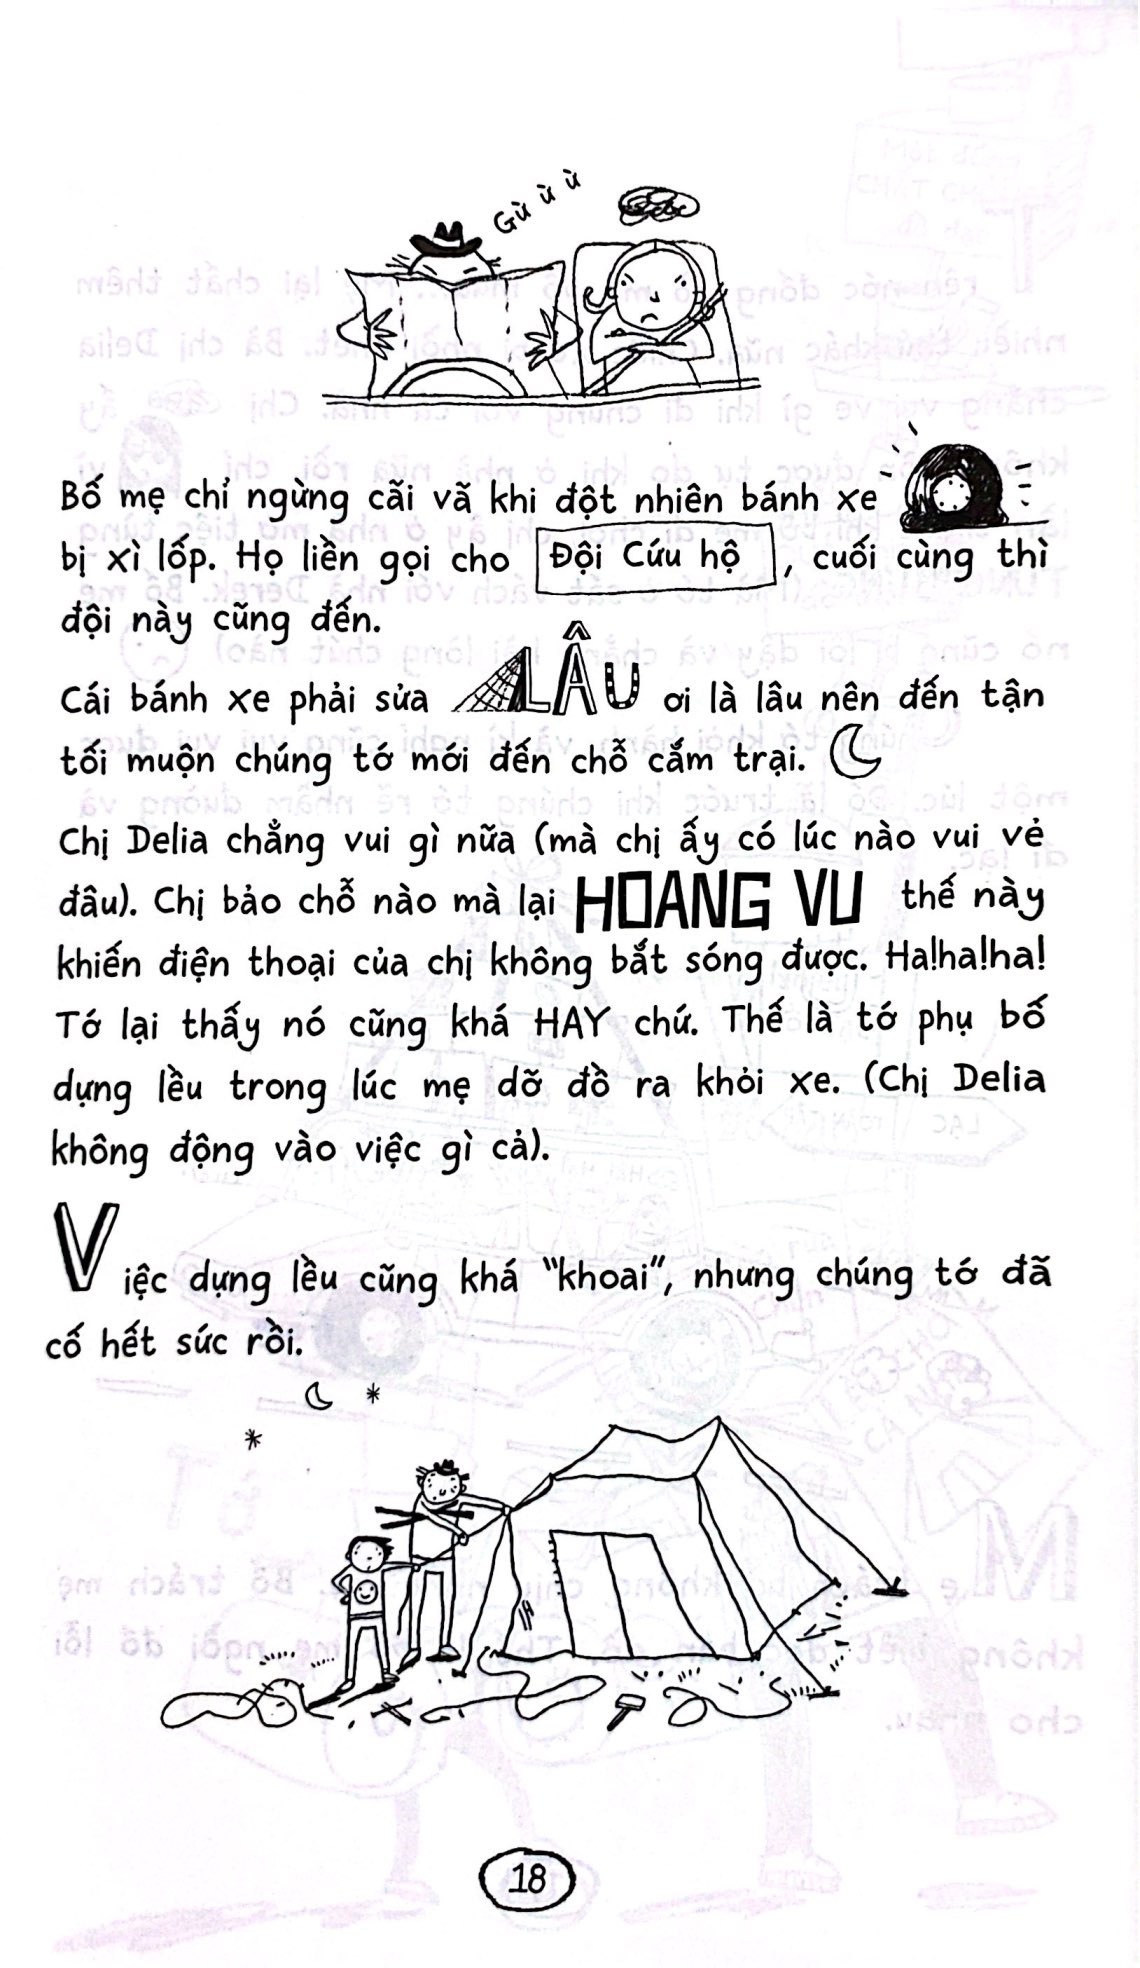 Gừ ừ ừ
Bố mẹ chỉ ngừng cãi vã khi đột nhiên bánh xe
bị xì lốp. Họ liền gọi cho Đội Cứu hộ, cuối cùng thì
đội này cũng đến.
Cái bánh xe phải sửa LÂU ơi là lâu nên đến tận
tối muộn chúng tớ mới đến chỗ cắm trại.
Chị Delia chẳng vui gì nữa (mà chị ấy có lúc nào vui vẻ
đâu). Chị bảo chỗ nào mà lại HOANG VU thế này
khiến điện thoại của chị không bắt sóng được. Ha!ha!ha!
Tớ lại thấy nó cũng khá HAY chứ. Thế là tớ phụ bố
dựng lều trong lúc mẹ dỡ đồ ra khỏi xe. (Chị Delia
không động vào việc gì cả).
Việc dựng lều cũng khá "khoai", nhưng chúng tớ đã
cố hết sức rồi.
18